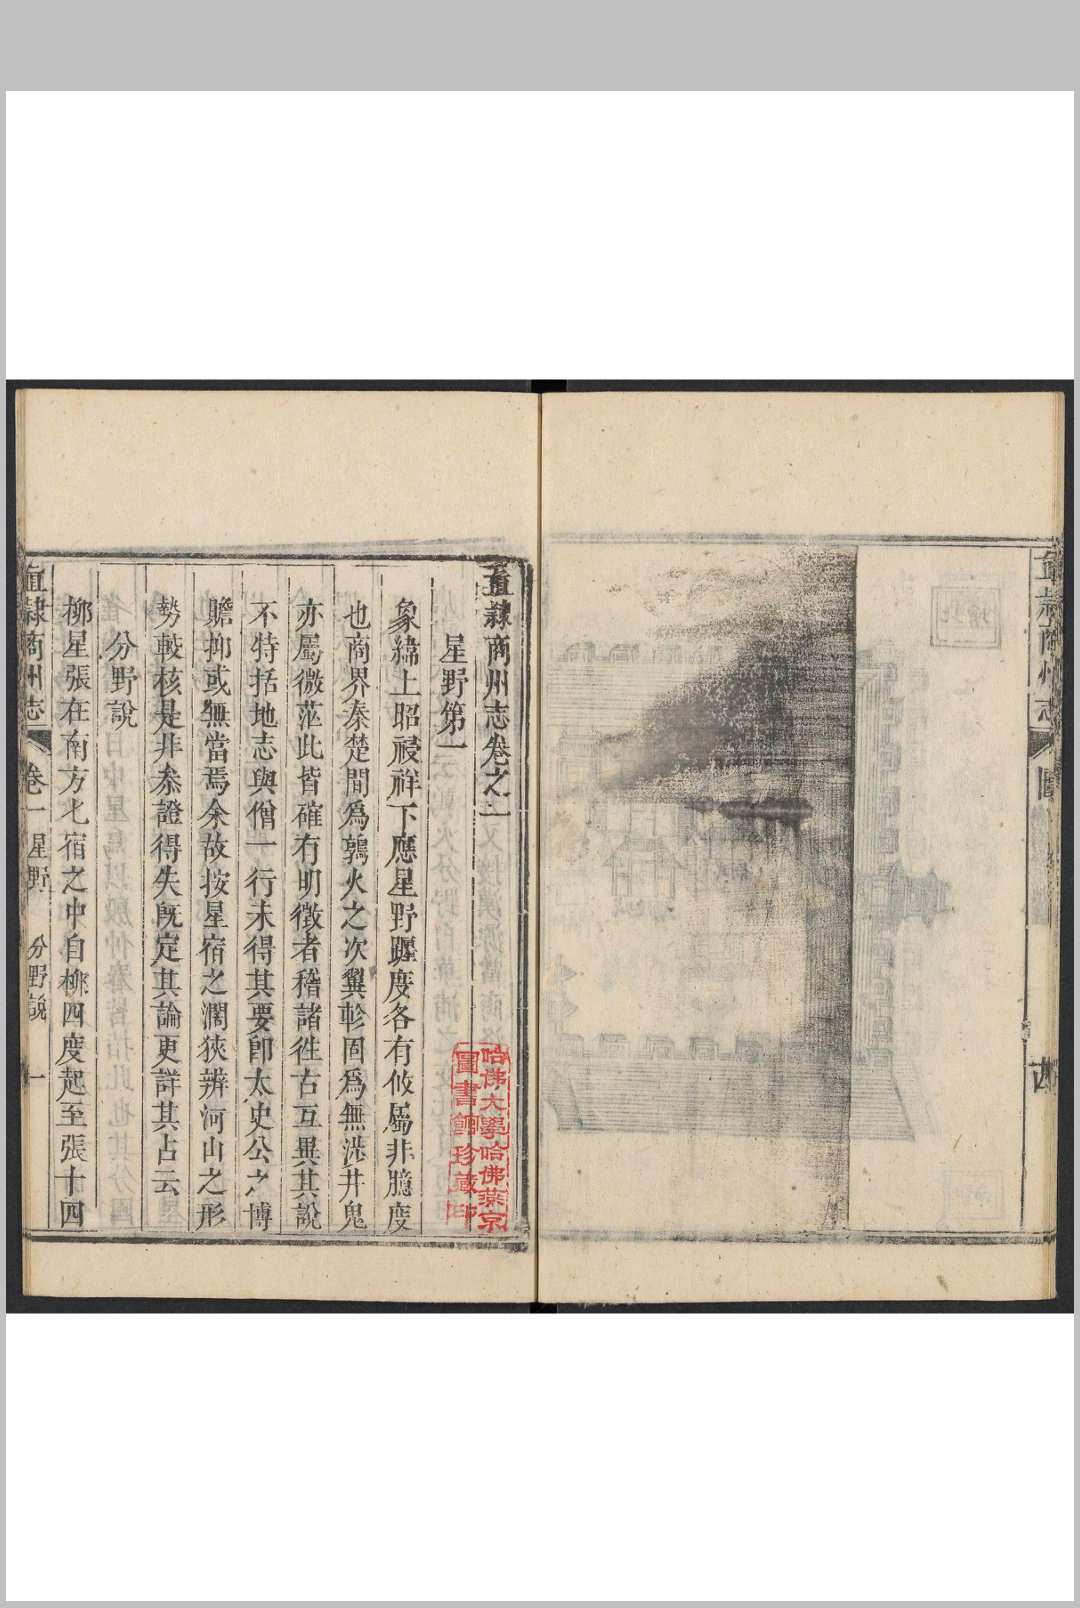 直隸商州志 圖
直隸商州志卷之一
星野第一
象緯上昭祲祥下應星野躔度各有攸屬非臆度
也商界秦楚間爲鶉火之次翼軫固爲無涉井鬼
亦屬微茫此皆確有明徵者稽諸徃古互異其說
不特括地志與僧一行未得其要卽太史公之博
贍抑或無當焉余故按星宿之濶狹辨河山之形
勢較核是非叅證得失旣定其論更詳其占云
分野說
柳星張在南方七宿之中自柳四度起至張十四
直隸商州志 卷一 星野 分野說 一
哈佛大學哈佛燕京
圖書館珍藏印